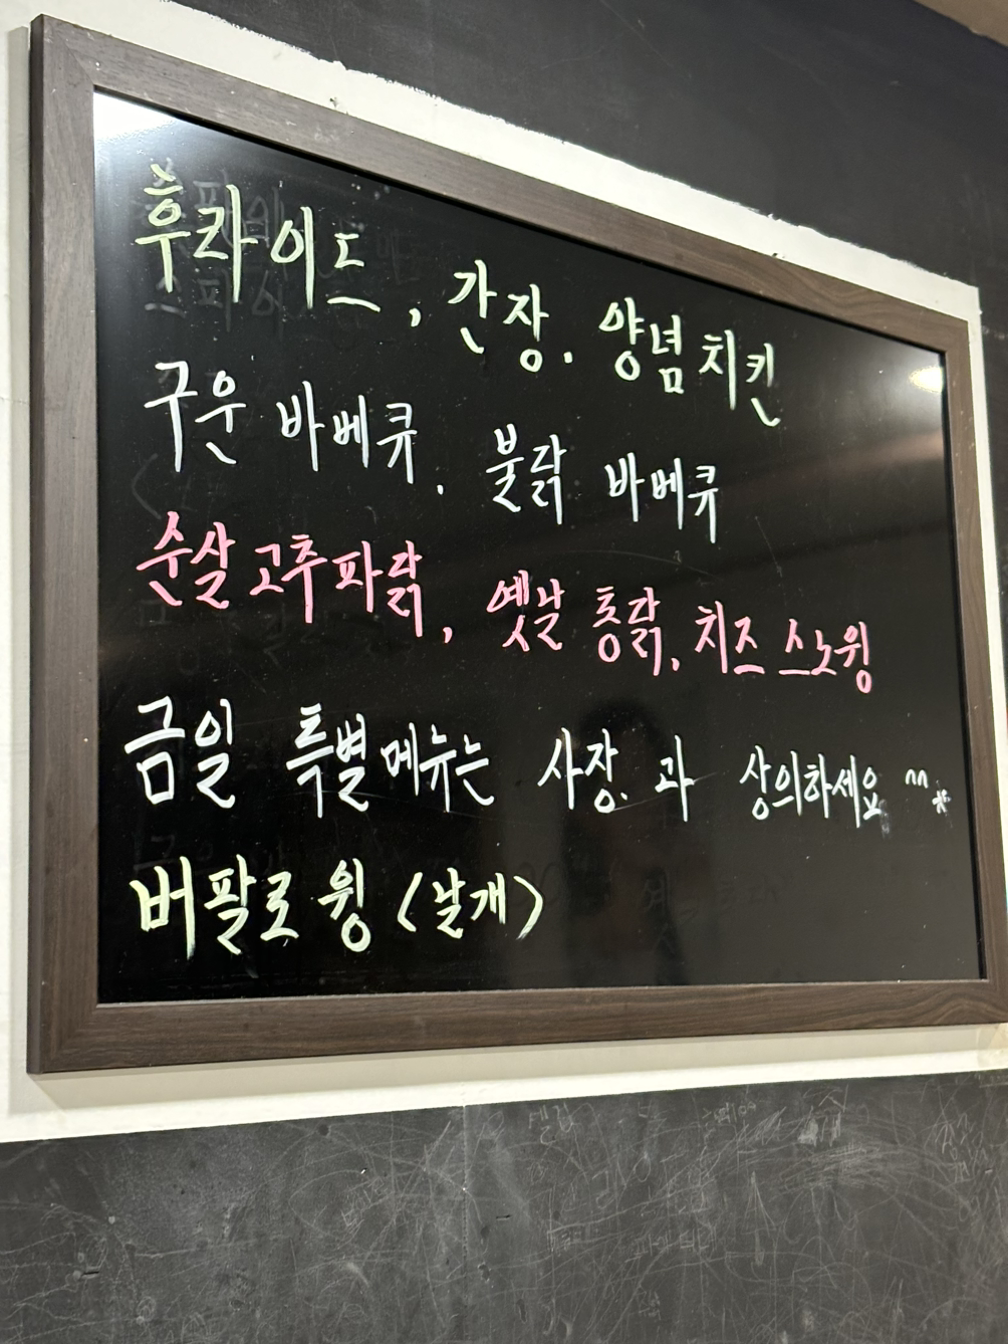 후라이드, 간장. 양념치킨
구운 바베큐. 불닭 바베큐
순살고추파닭, 옛날 통닭, 치즈 스노윙
금일 특별메뉴는 사장. 과 상의하세요 ^^*
버팔로 윙 (날개)